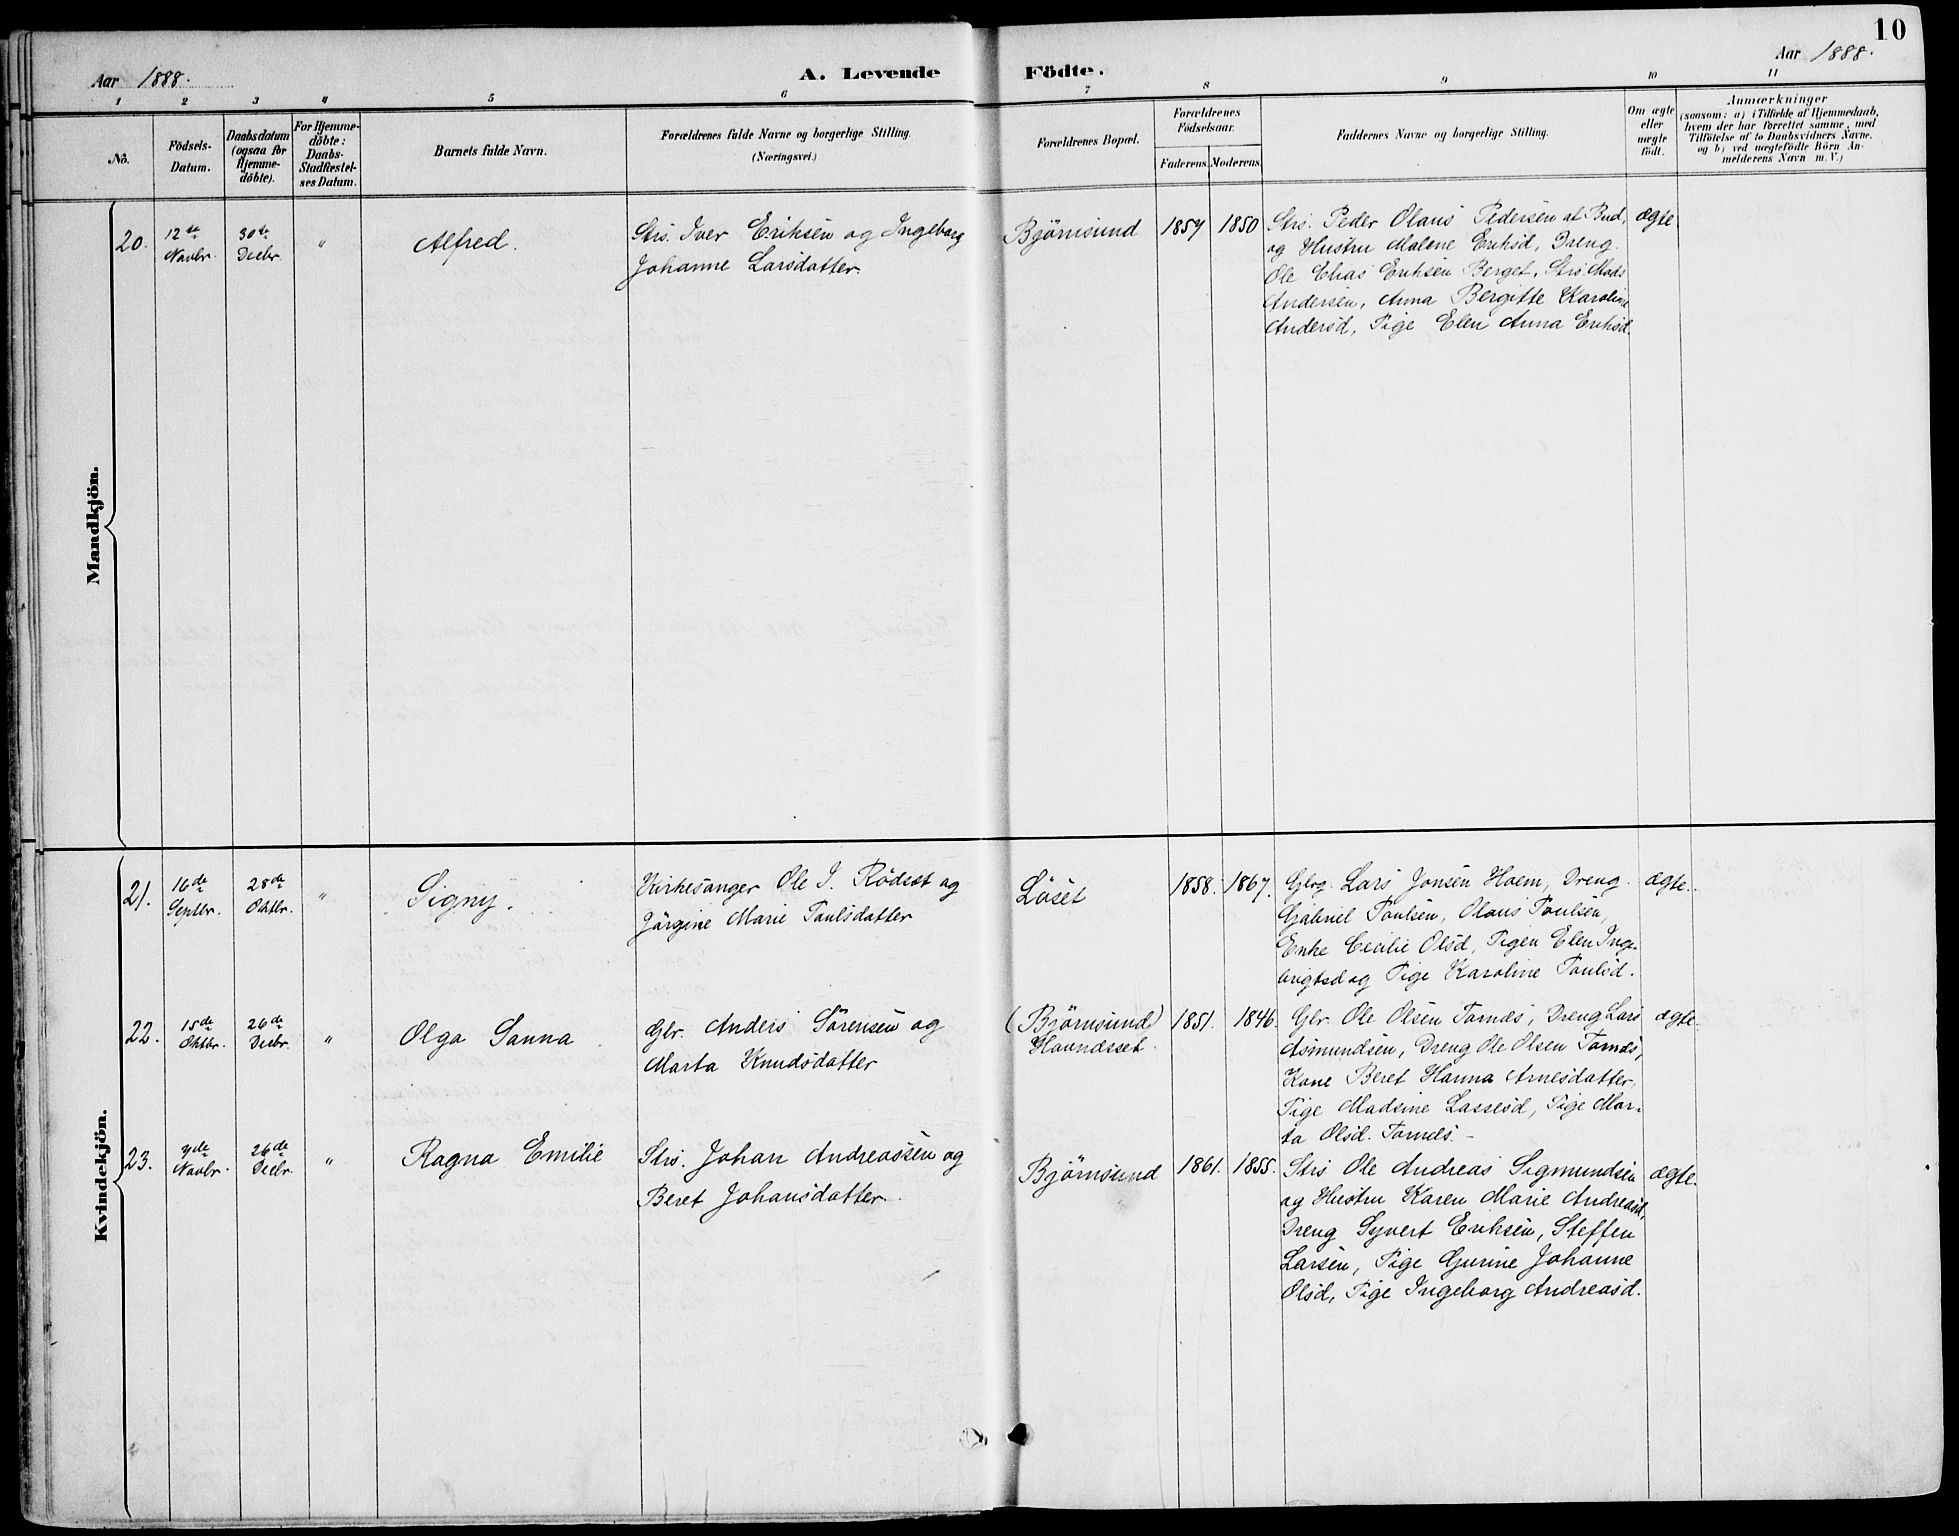 10
Aar 1888.
A. Levende Födte.
Aar 1888.
1 2 3 4 5 6 7 8 9 10 11
No.
Födsels-
Datum.
Daabsdatum
(ogsaa for
Hjemme-
döbte).
For Hjemme-
döbte:
Daabs-
Stadfæstel-
ses Datum.
Barnets fulde Navn.
Forældrenes fulde Navne og borgerlige Stilling.
(Næringsvei.)
Forældrenes Bopæl.
Forældrenes
Födselsaar.
Faderens. Moderens.
Faddernes Navne og borgerlige Stilling.
Om ægte
eller
uægte
født.
Anmærkninger
(saasom: a) i Tilfælde af Hjemmedaab,
hvem der har forrettet samme, med
Tilföielse af to Daabsvidners Navne,
og b) ved uægtefödte Börn An-
melderens Navn m. V.)
Mandkjön.
20.
12te
Novbr.
30te
Decbr.
"
Alfred.
Strs. Iver Eriksen og Ingeborg
Johanne Larsdatter.
Björnsund
1857
1850
Strs. Peder Olaus Pedersen at Bud,
og Hustru Malene Eriksd, Dreng
Ole Elias Eriksen Berget, Strs. Mads
Andersen, Anna Bergitte Karoline
Andersd, Pige Elen Anna Eriksd.
ægte
Kvindekjön.
21.
16de
Septbr.
28de
Oktbr.
"
Signy.
Kirkesanger Ole J. Rödset og
Jörgine Marie Paulsdatter
Löset
1858.
1867.
Gbrg. Lars Jonsen Haem, Dreng
Gabriel Poulsen, Olaus Poulsen,
Enke Cecilie Olsd, Pigen Elen Inge-
brigtsd og Pige Karoline Poulsd.
ægte.
22.
15de
Oktbr.
26de
Decbr.
"
Olga Sanna
Gbr. Anders Sörensen og
Marta Knudsdatter
(Björnsund)
Havnesset.
1851.
1846.
Gbr. Ole Olsen Tornæs, Dreng Lars
Asmundsen, Dreng Ole Olsen Tornæs,
Kone Beret Hanna Arnesdatter,
Pige Madsine Lassesd, Pige Mar-
ta Olsd. Tornæs.-
ægte.
23.
7de
Novbr.
26de
Decbr.
"
Ragna Emilie
Strs. Johan Andreassen og
Beret Johansdatter.
Björnsund
1861.
1855.
Strs Ole Andreas Sigmundsen
og Hustru Karen Marie Andreasd,
Dreng Syvert Eriksen, Steffen
Larsen, Pige Gurine Johanne
Olsd, Pige Ingeborg Andreasd.
ægte.